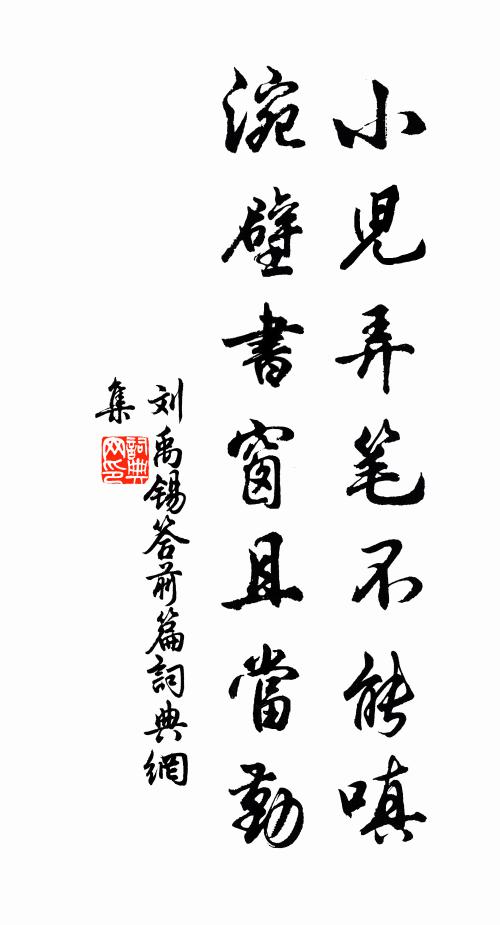 小児弄笔不能嗔
涴壁書窗且當勤
刘禹锡答前篇詞典網
集
詞典网印